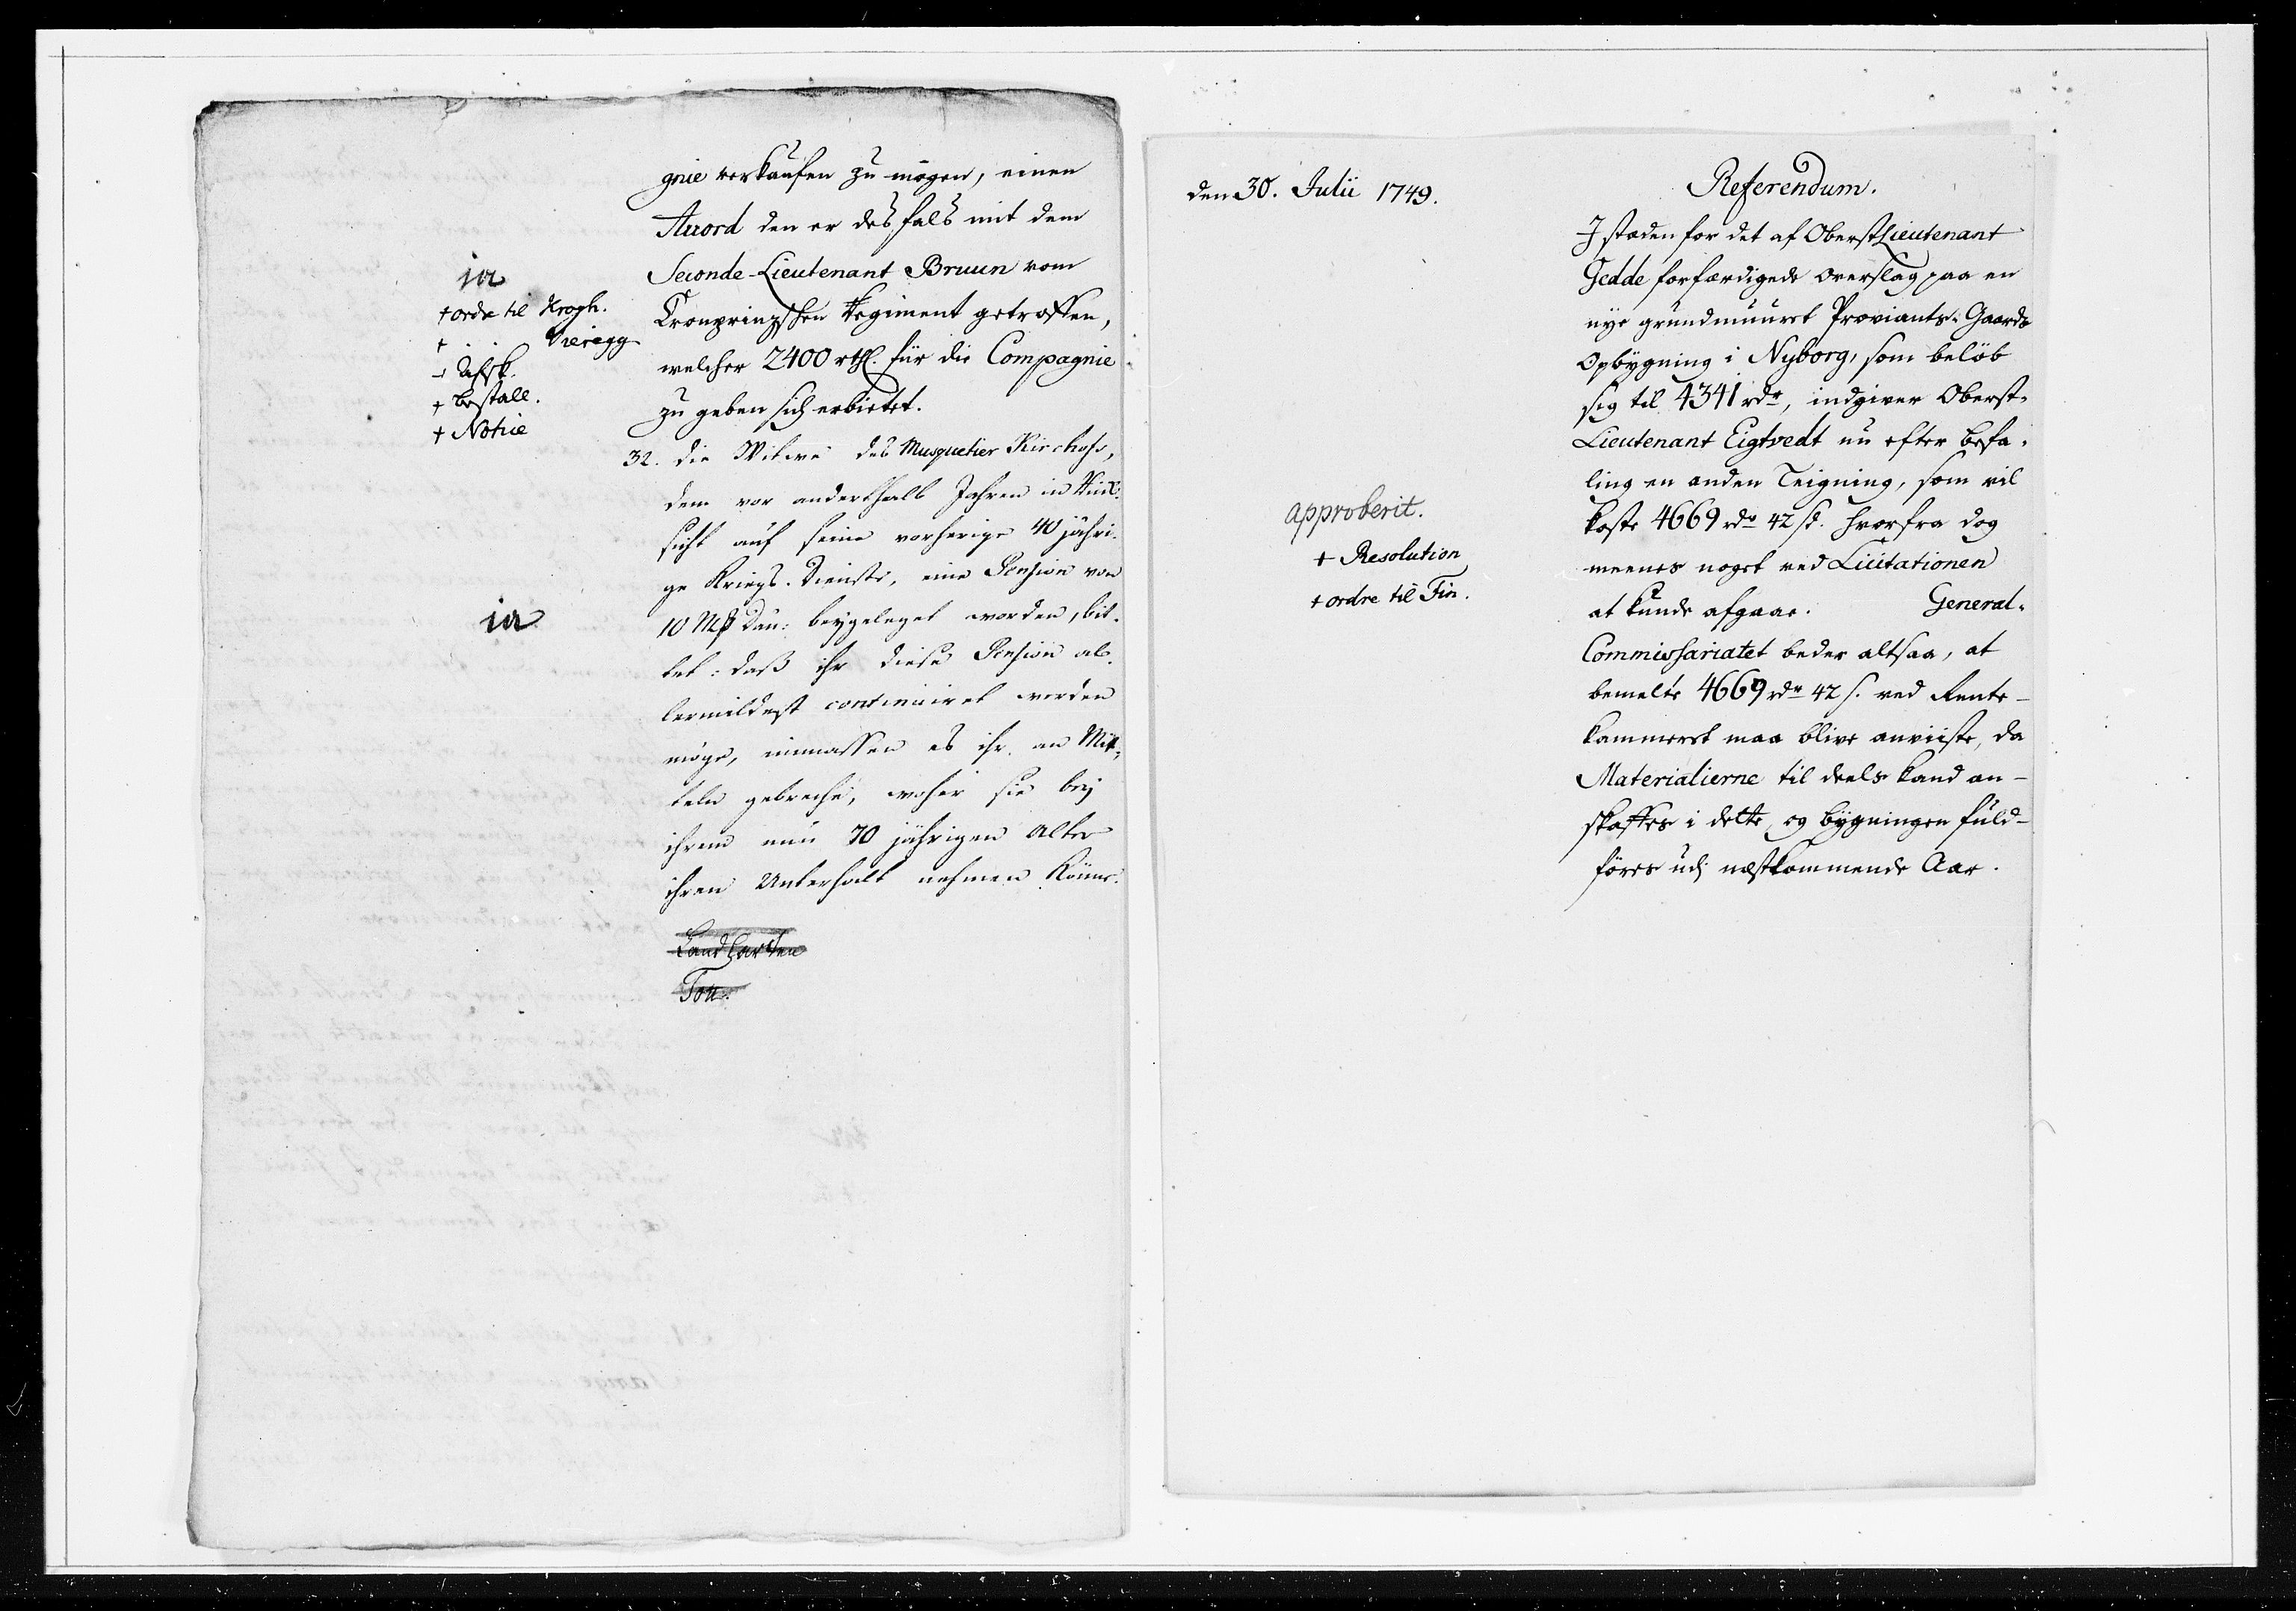 gnie verkaufen zu mögen, einen
Accord den er desfals mit dem
Seconde-Lieutenant Bruun vom
Cronprinzschen Regiment getroffen,
welcher 2400 rthl. für die Compagnie
zu geben sich erbietet.
ja
+ ordre til Krogh.
+ . . Vieregg
+ Afsk.
+ bestall.
+ Notice
32. die Witwe des Musquetier Kirchhofs,
dem vor anderthalb Jahren in Hin-
sicht auf seine vorherige 40 jähri-
ge Kriegs-Dienste, eine Pension von
10 Mß Dän: beygeleget worden, bit-
tet: daß ihr diese Pension al-
lermildest continuiret werden
möge, inmassen es ihr an Mit-
teln gebreche, woher sie bey
ihrem nun 70 jährigen Alter
ihren Unterhalt nehmen könne.
ja
Landcharten
den 30. Julii 1749.
Referendum.
I stæden for det af Oberstlieutenant
Gedde forfærdigede Overslag paa en
nye grundmuuret Proviants-Gaards
Opbygning i Nyborg, som beløb
sig til 4341 rdr, indgiver Oberst-
Lieutenant Eigtvedt nu efter befa-
ling en anden Teigning, som vil
koste 4669 rdr 42 sk. hvorfra dog
meenes noget ved Licitationen
at kunde afgaae. General-
Commissariatet beder altsaa, at
bemelte 4669 rdr 42 s. ved Rente-
kammeret maa blive anviiste, da
Materialierne til deels kand an-
skaffes i dette, og bygningen fuld-
føres udj næstkommende Aar.
approberit.
+ Resolution
+ ordre til Fin.